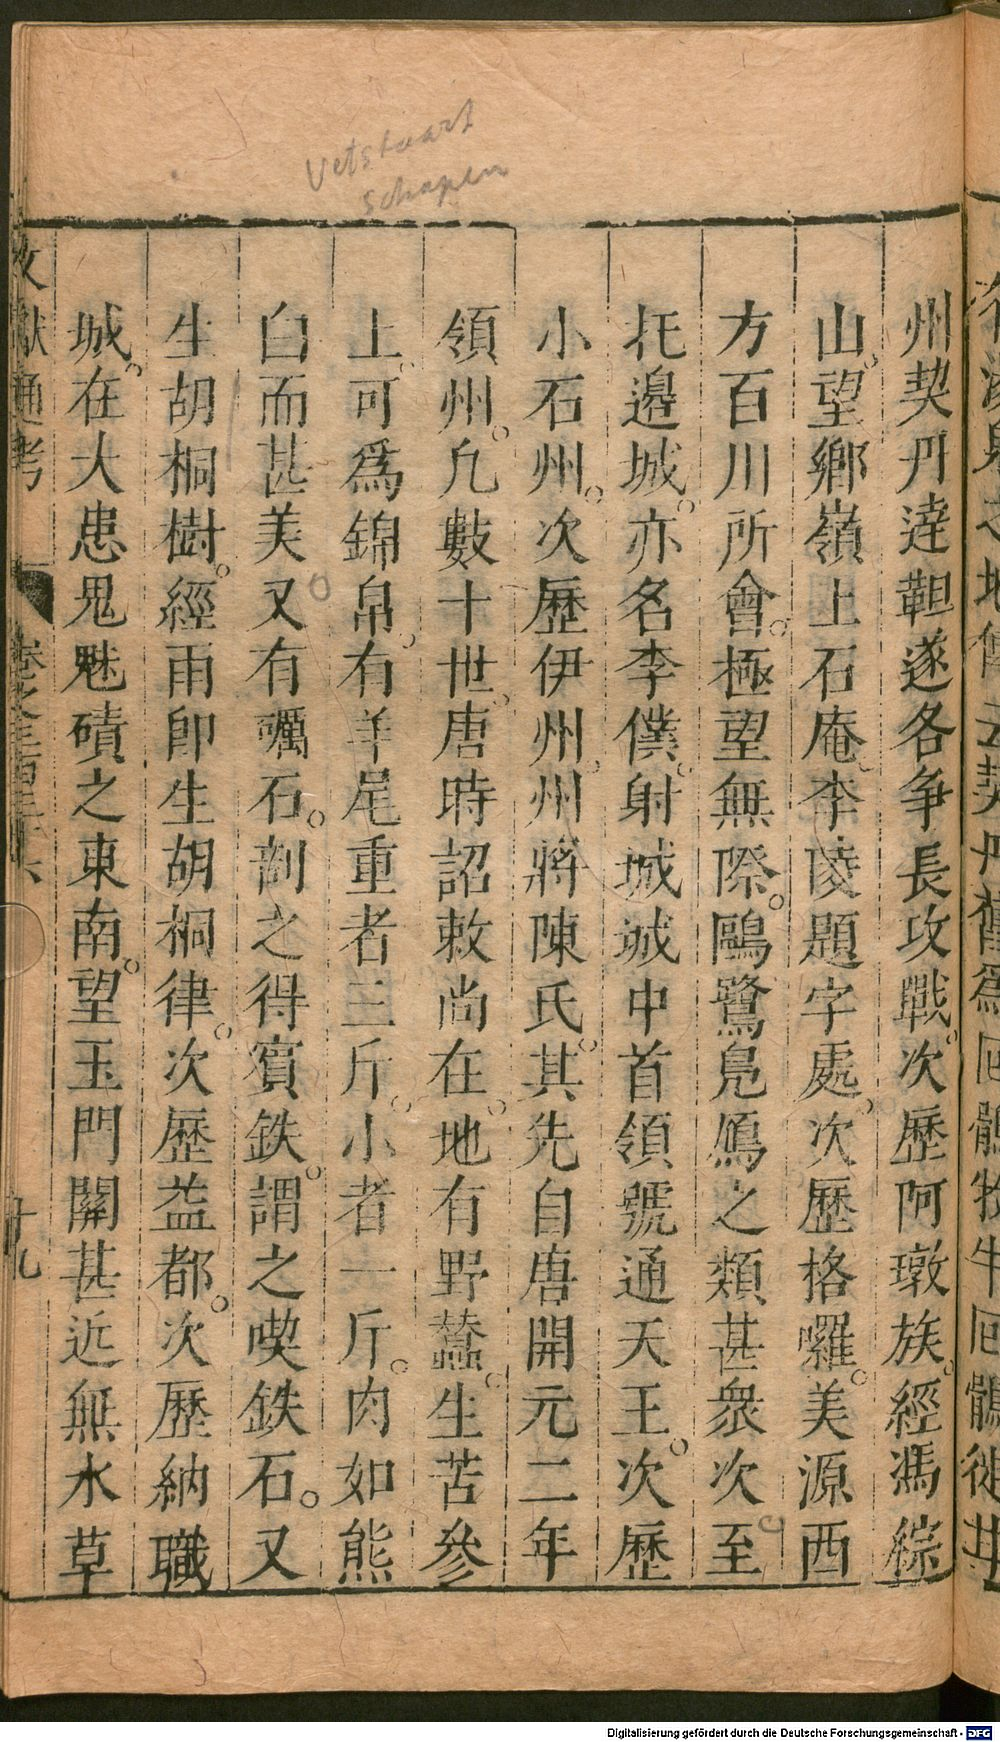 Vetstaart
schapen
州契丹達靼遂各争長攻戰。次歷阿墩族。經馮綜
山。望鄉嶺上石庵。李陵題字處。次歷格囉。美源西
方百川所會。極望無際。鷗鷺鳧鴈之類甚衆次至
托邊城。亦名李僕。射城城中首領號通天王。次歷
小石州。次歷伊州。州將陳氏。其先自唐開元二年
領州。凢數十世。唐時詔敕尚在。地有野蠶。生苦參
上。可爲錦帛。有羊尾重者三斤。小者一斤。肉如熊
白而甚美又有礪石。剖之得賓鉄。謂之喫鉄石。又
生胡桐樹。經雨卽生胡桐律。次歷益都。次歷納職
城。在大患鬼魅磧之東南。望玉門關甚近無水草
文獻通考
卷之三百三十六
十九
Digitalisierung gefördert durch die Deutsche Forschungsgemeinschaft - DFG